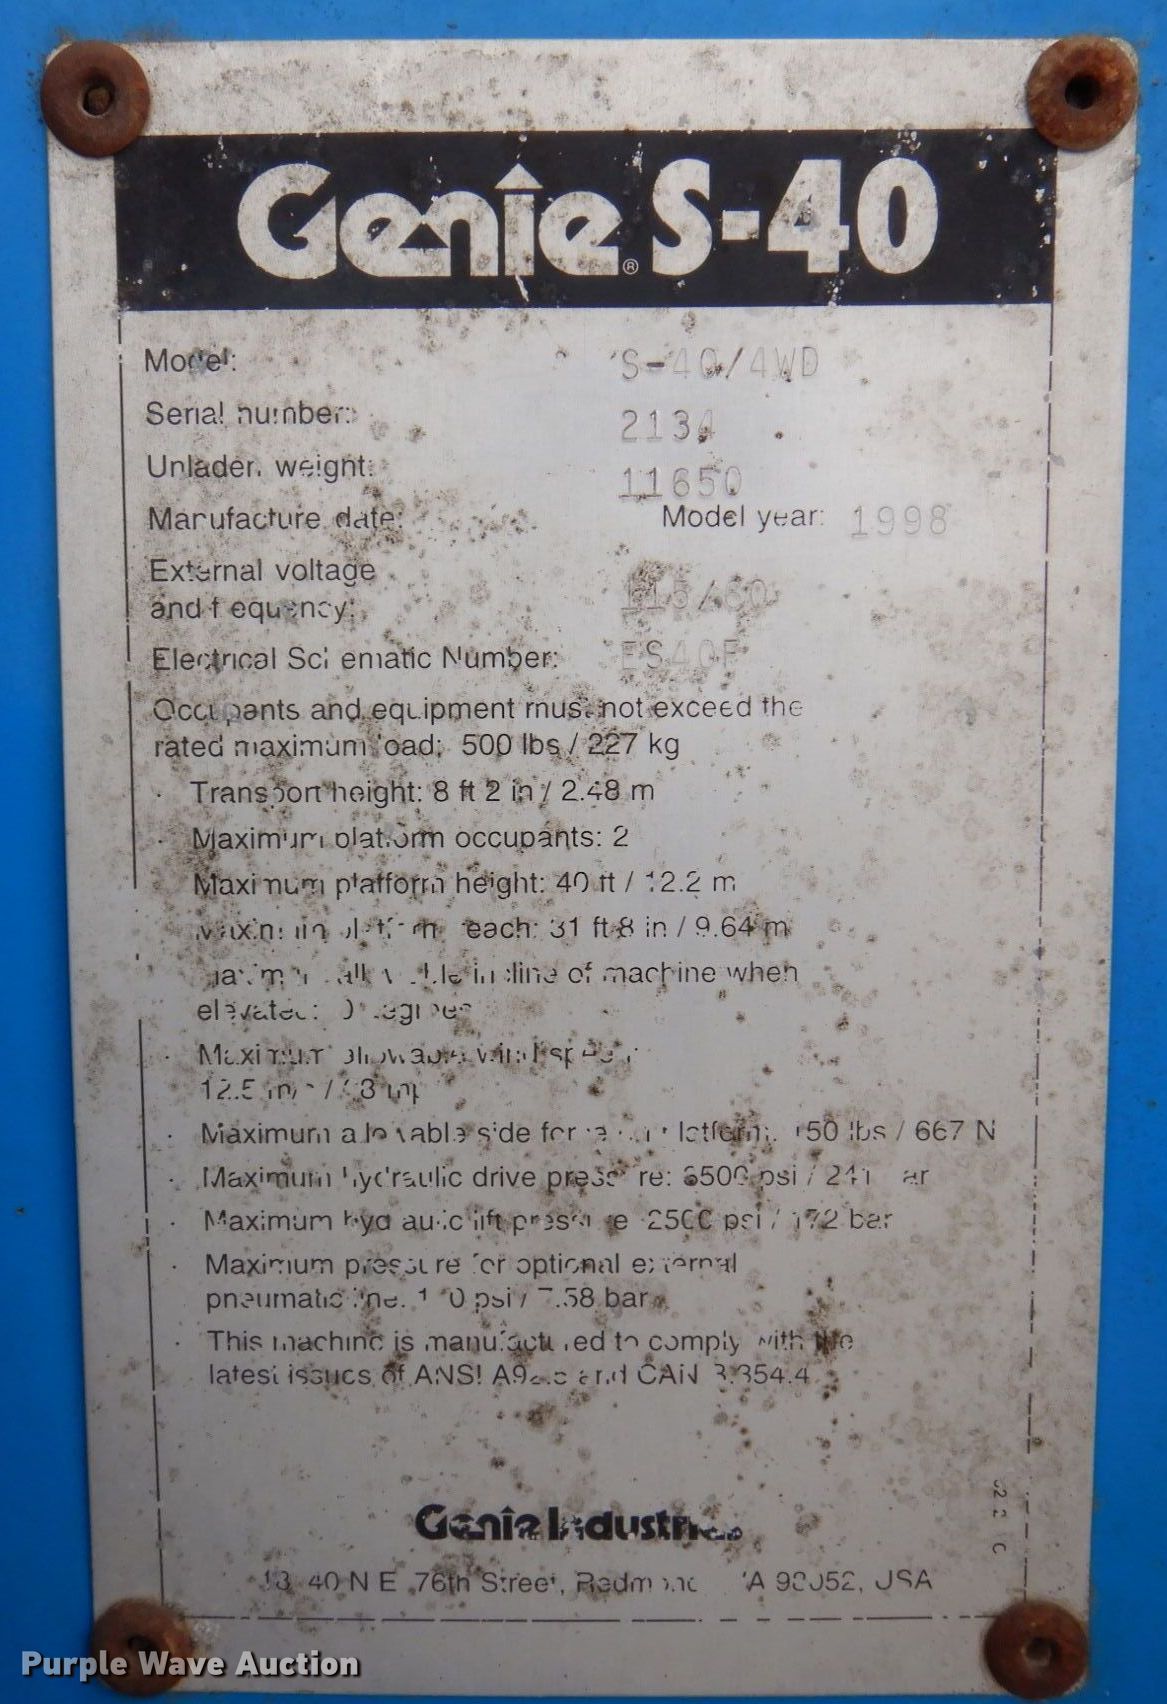 Genie® S-40
Model: S-40/4WD
Serial number: 2134
Unladen weight: 11650
Manufacture date: Model year: 1998
External voltage
and frequency: 115/60
Electrical Schematic Number: ES40F
Occupants and equipment must not exceed the
rated maximum load: 500 lbs / 227 kg
· Transport height: 8 ft 2 in / 2.48 m
· Maximum platform occupants: 2
Maximum platform height: 40 ft / 12.2 m
Maximum platform reach: 31 ft 8 in / 9.64 m
Maximum allowable incline of machine when
elevated: 0 degrees
· Maximum allowable wind speed:
12.5 m/s / 28 mph
· Maximum allowable side force platform: 150 lbs / 667 N
· Maximum hydraulic drive pressure: 3500 psi / 241 bar
· Maximum hydraulic lift pressure 2500 psi / 172 bar
· Maximum pressure for optional external
pneumatic line: 110 psi / 7.58 bar
· This machine is manufactured to comply with the
latest issues of ANSI and CAN B.354.4
Genie Industries
N E 76th Street, Redmond WA 98052, USA
Purple Wave Auction